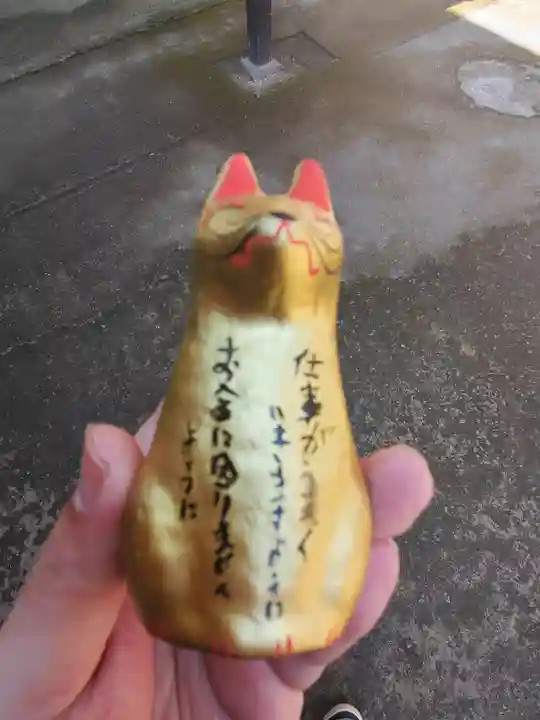 仕事がうまく
いきますように
お金に困りません
ように